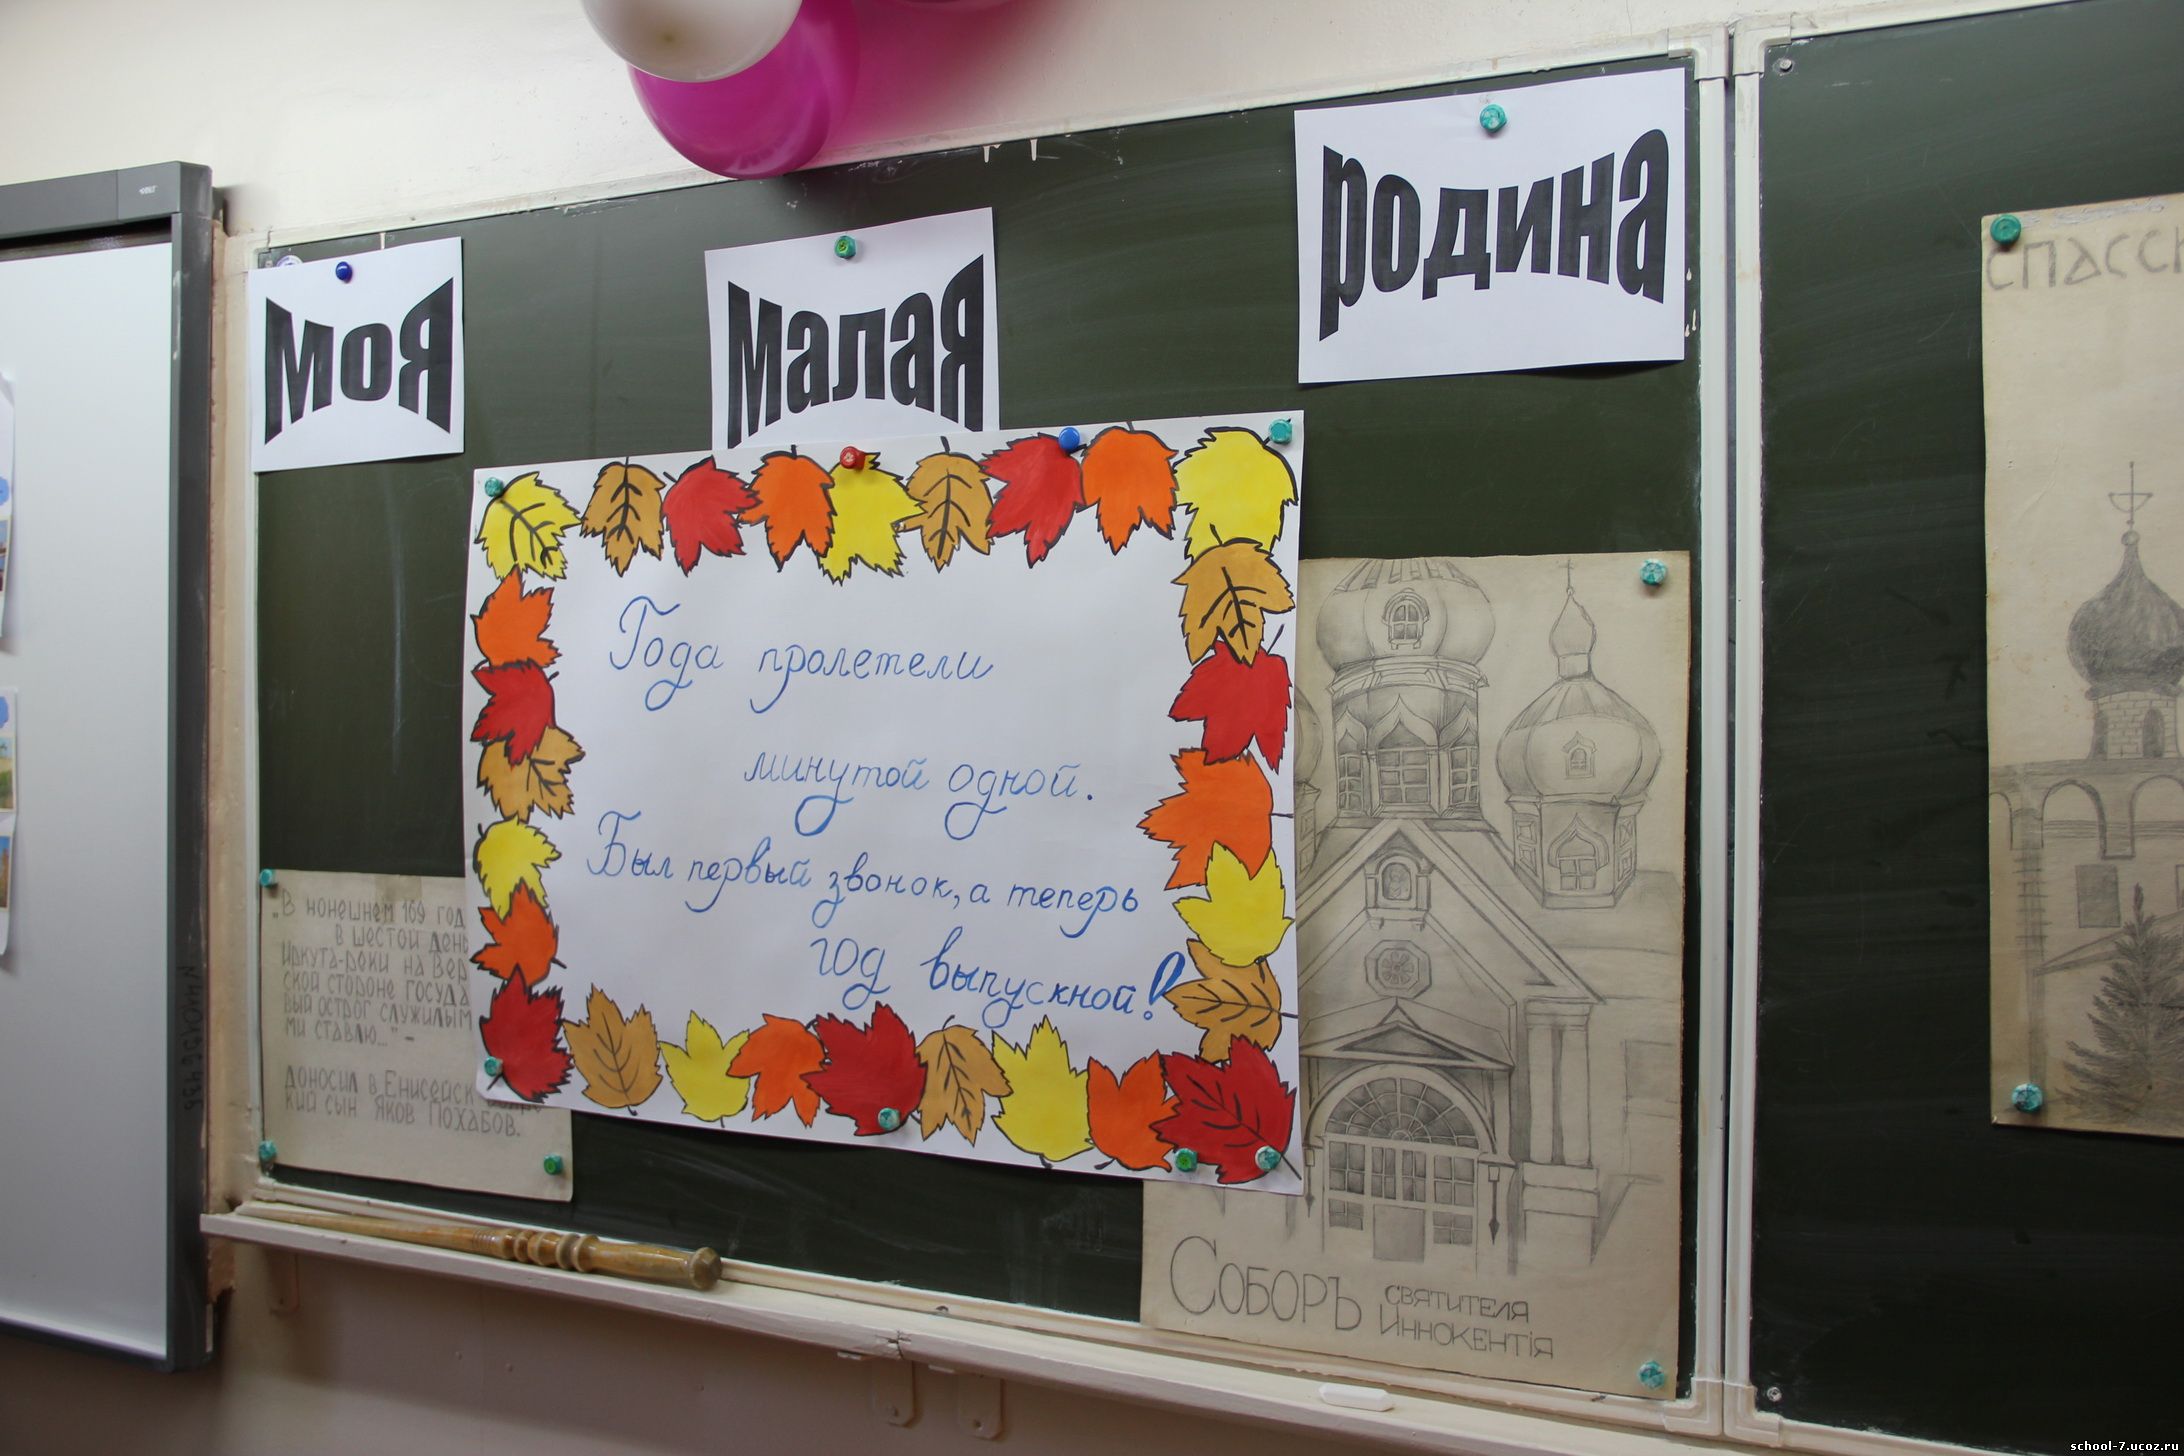 Моя
малая
родина
спасск
Года пролетели
минутой одной.
Был первый звонок, а теперь
год выпускной!
„В нонешнем 169 год
в шестой день
Иркута-реки на Вер
ской стороне госуда
вый острог служилым
ми ставлю..." -
доносил в Енисейск
кий сын Яков Похабов.
Соборъ святителя
Иннокентiя
school-7.ucoz.ru